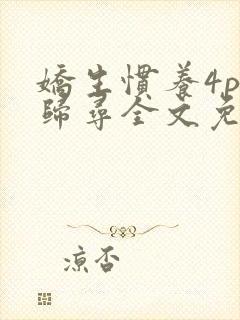 嬌生慣養4p
歸尋全文免
凉否